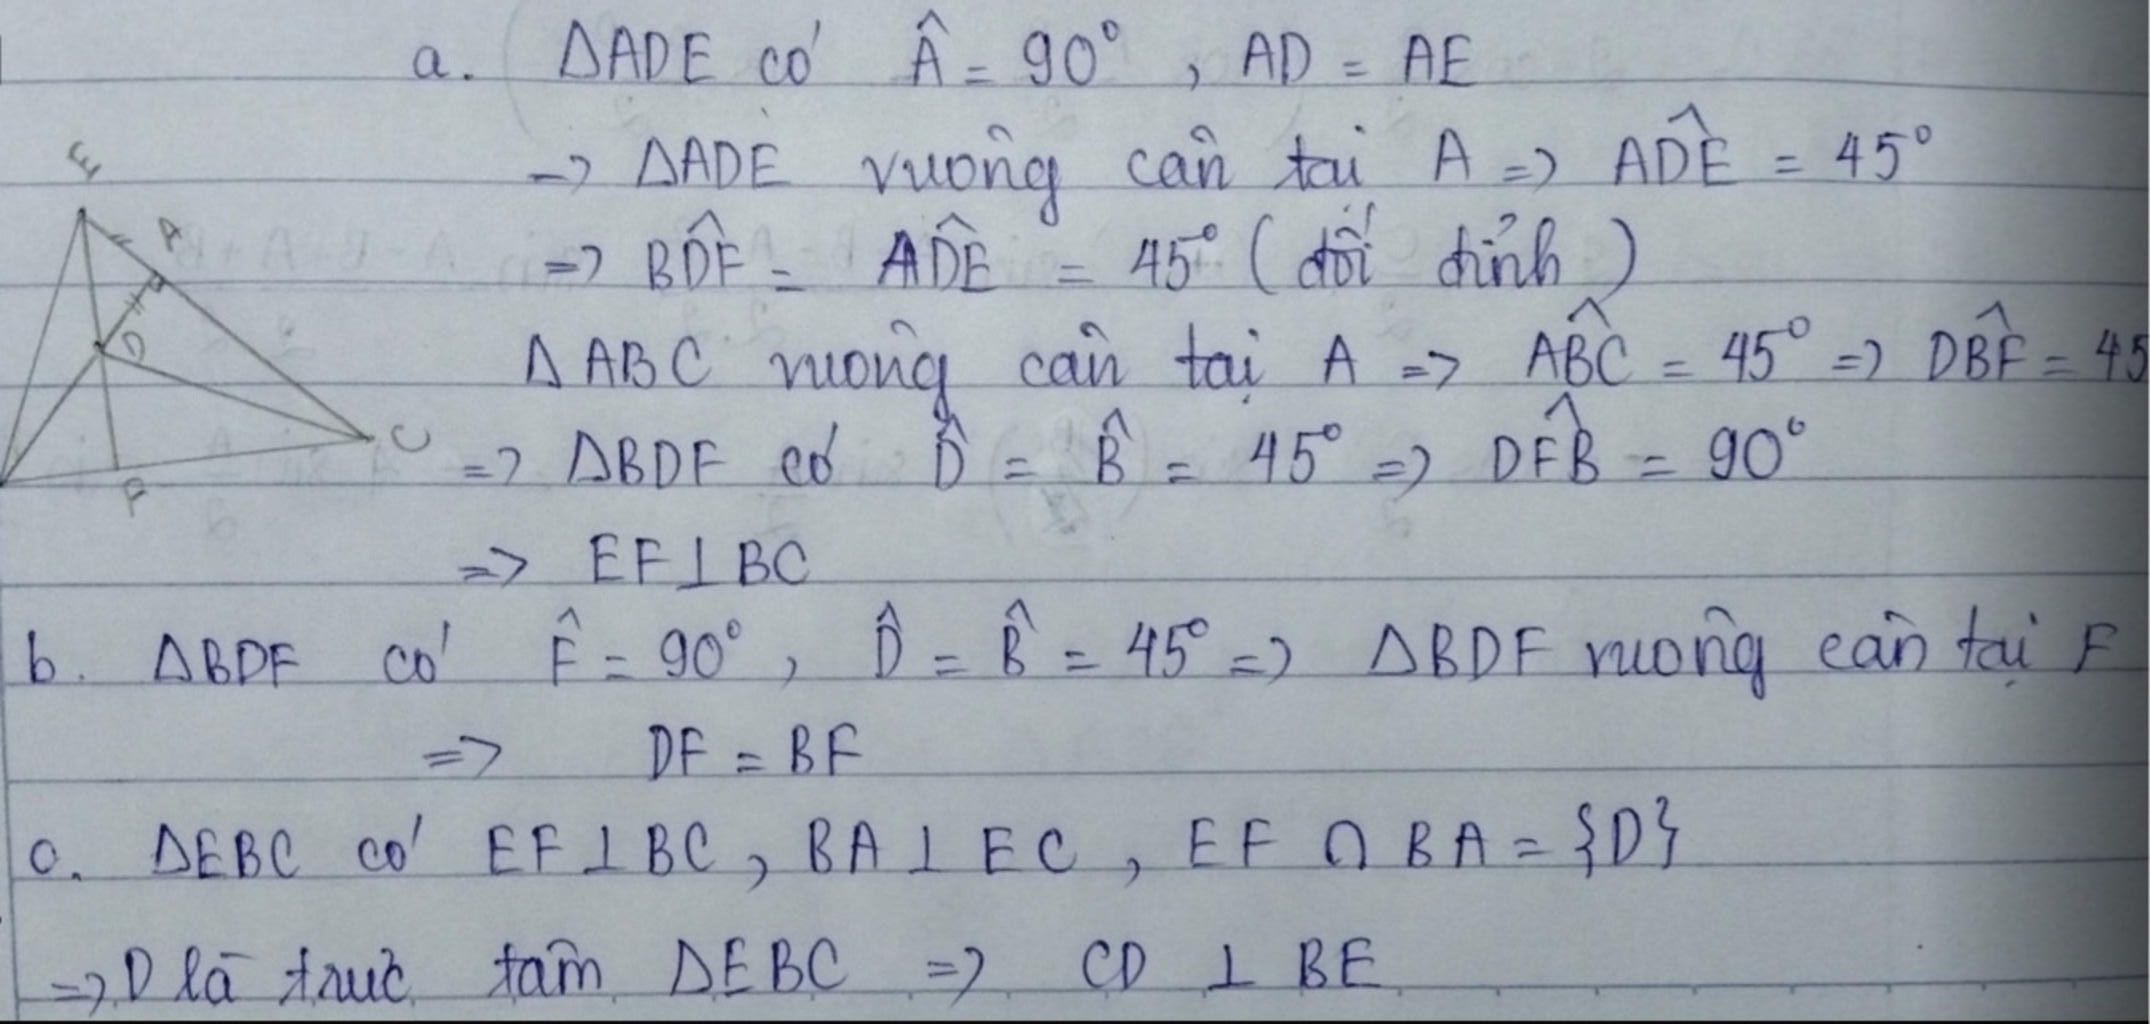 a. ΔADE có Â = 90°, AD = AE
E
-> ΔADE vuông cân tại A => AD̂E = 45°
A
=> BD̂F = AD̂E = 45° (đối đỉnh)
D
ΔABC vuông cân tại A => AB̂C = 45° => DB̂F = 45
C
=> ΔBDF có D̂ = B̂ = 45° => DF̂B = 90°
F
=> EF⊥BC
b. ΔBDF có F̂ = 90°, D̂ = B̂ = 45° => ΔBDF vuông cân tại F
=> DF = BF
c. ΔEBC có EF⊥BC, BA⊥EC, EF ∩ BA = {D}
=> D là trực tâm ΔEBC => CD ⊥ BE